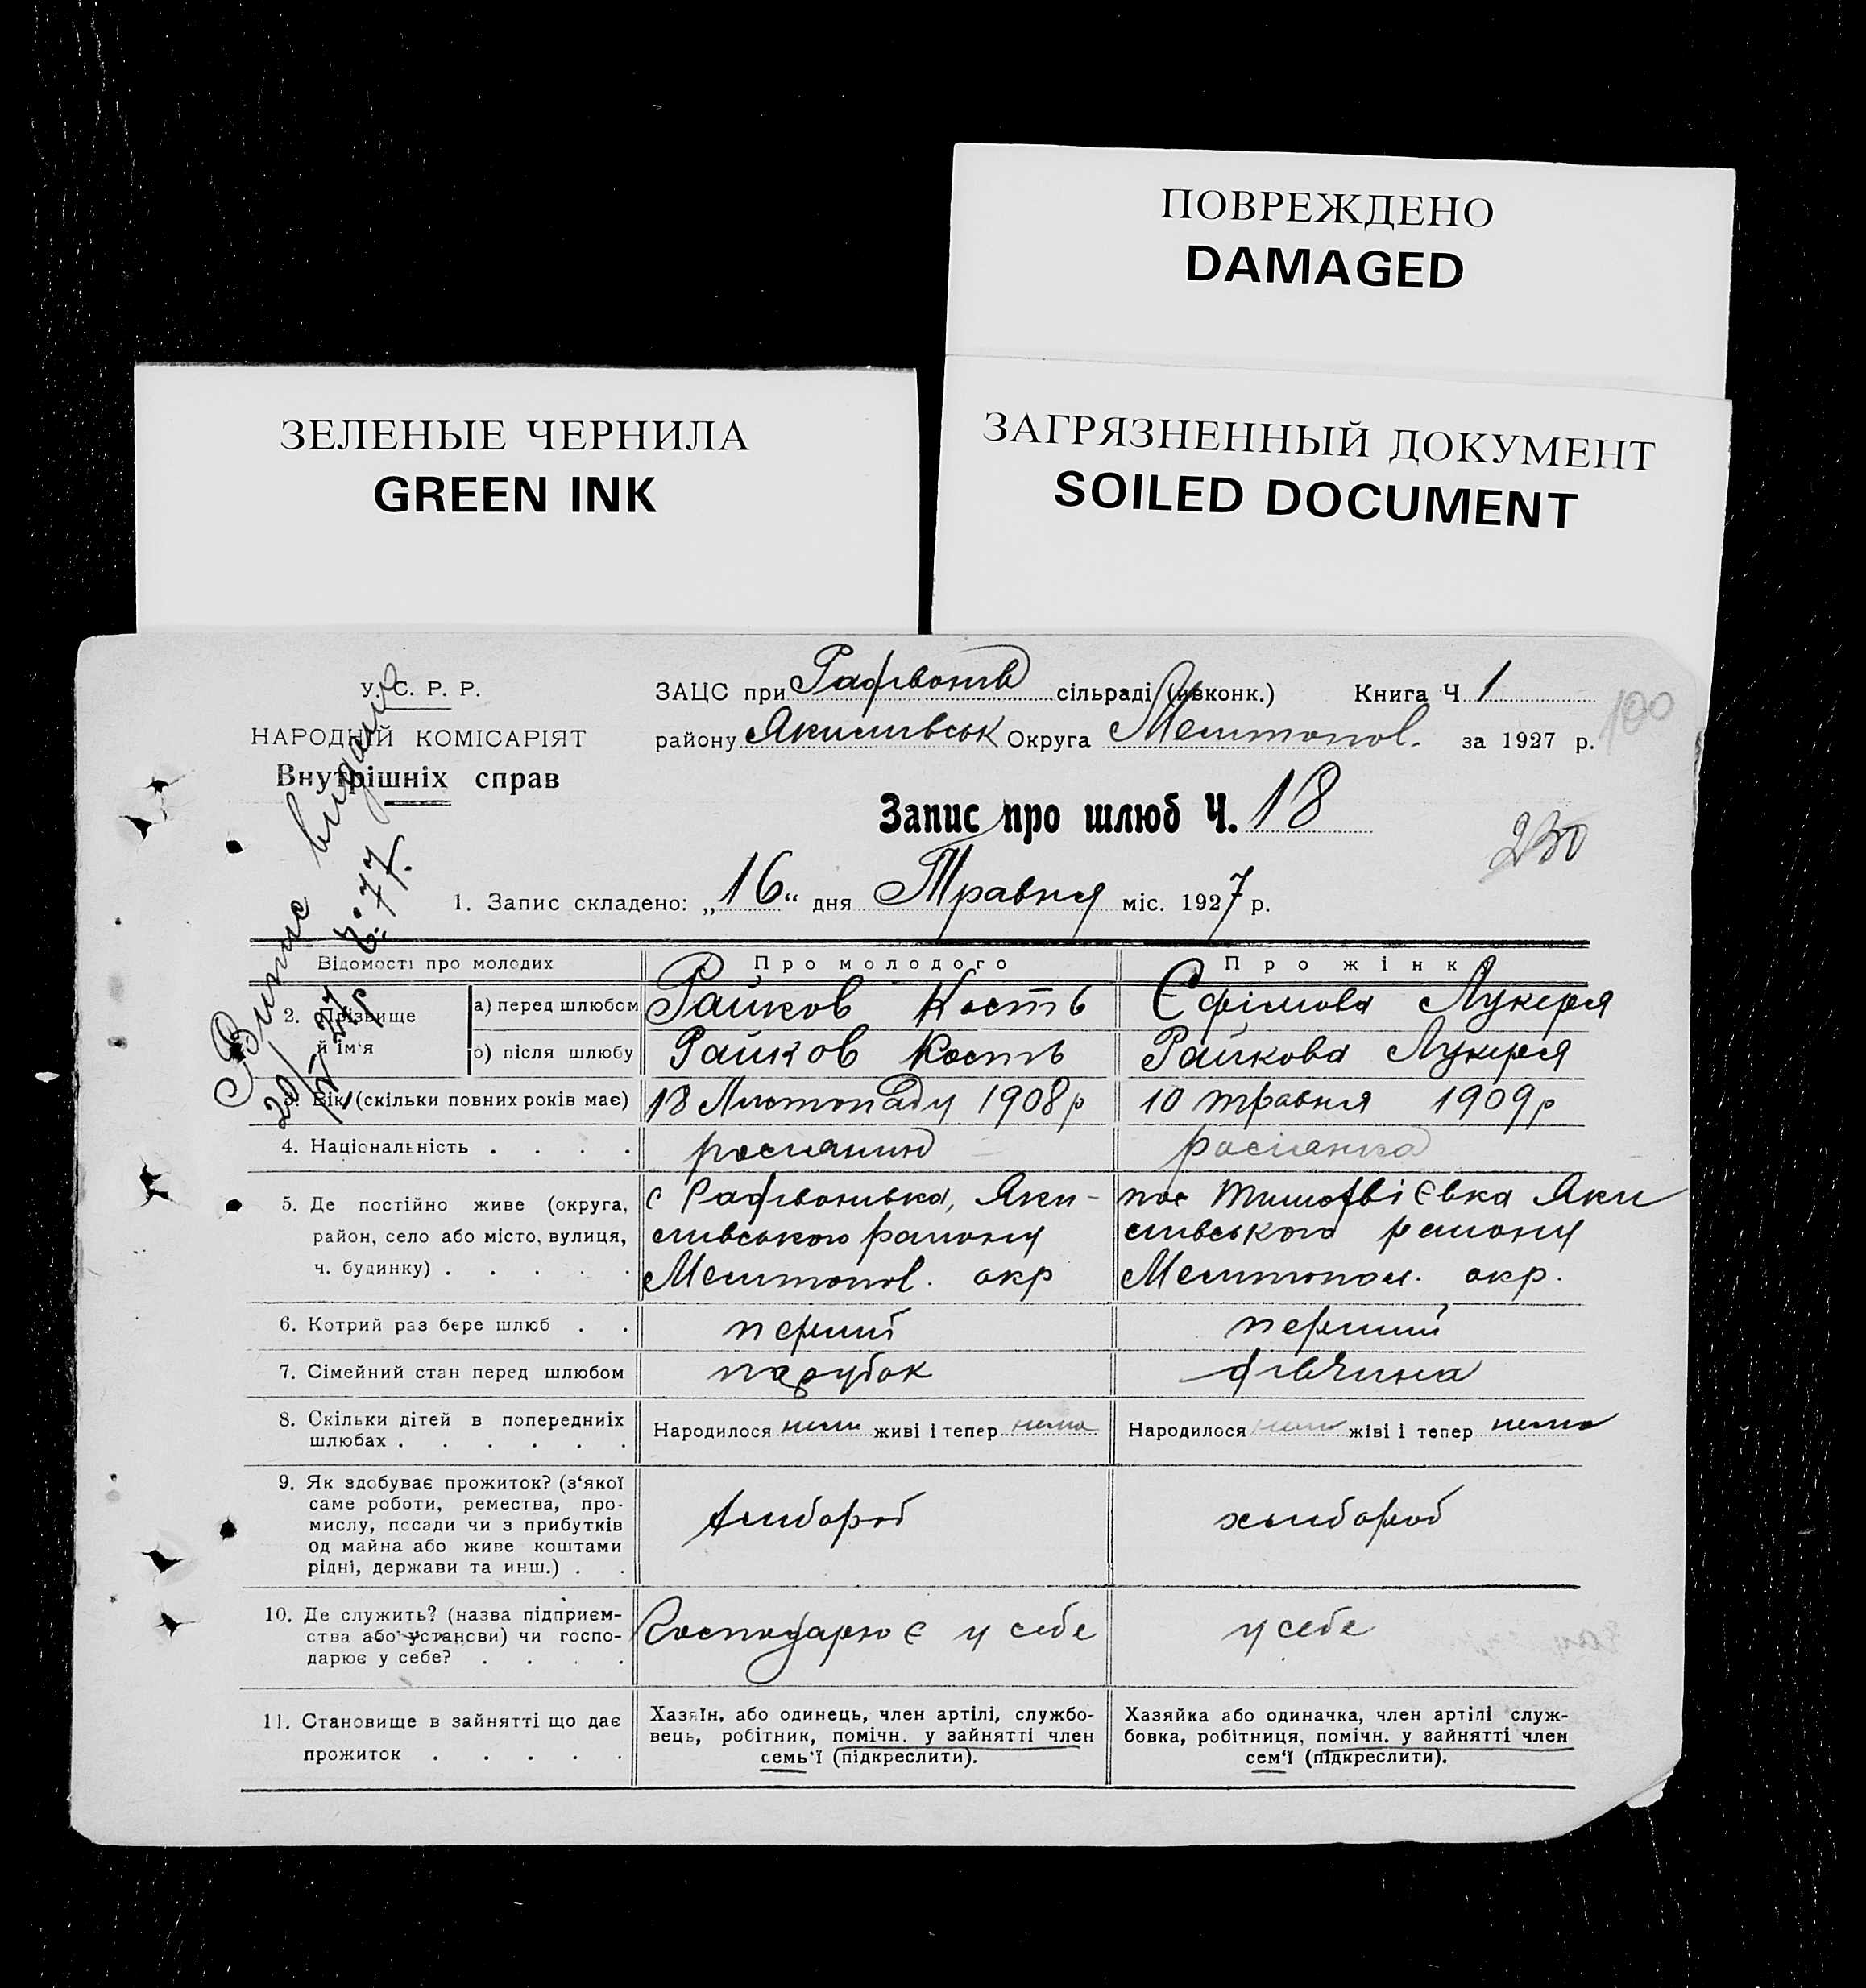 ПОВРЕЖДЕНО
DAMAGED
ЗЕЛЕНЫЕ ЧЕРНИЛА
GREEN INK
ЗАГРЯЗНЕННЫЙ ДОКУМЕНТ
SOILED DOCUMENT
У. С. Р. Р.
НАРОДНІЙ КОМІСАРІЯТ
Внутрішніх справ
ЗАЦС при Рафівонів сільраді (ивконк.) Книга Ч 1
району Якимивськ Округа Мелитопол. за 1927 р.
100
Запис про шлюб Ч. 18
230
1. Запис складено: „16“ дня Травня міс. 1927 р.
Випис видано
Відомості про молодих Про молодого Про жінку
2. Прізвище й ім'я
а) перед шлюбом Райков Кость Єфімова Лукеря
о) після шлюбу Райков Кость Райкова Лукеря
3. Вік (скільки повних років має) 18 Листопаду 1908 р 10 травня 1909 р
4. Національність . . . . росиянин росиянка
5. Де постійно живе (округа, с Рафівонивка, Яки- пос Тимофвієвка Яки
район, село або місто, вулиця, мивського району мивського району
ч. будинку) . . . . . Мелитопол. окр Мелитопол. окр.
6. Котрий раз бере шлюб . . перший перший
7. Сімейний стан перед шлюбом парубок дівчина
8. Скільки дітей в попередниіх
шлюбах . . . . . .
Народилося нема живі і тепер нема Народилося нема жіві і тепер нема
9. Як здобуває прожиток? (з'якої
саме роботи, ремества, про-
мислу, посади чи з прибутків
од майна або живе коштами
рідні, держави та инш.) . .
хлибороб хлибороб
10. Де служить? (назва підприєм-
ства або установи) чи госпо-
дарює у себе? . . . .
Господарює у себе у себе
11. Становище в зайнятті що дає
прожиток . . . . .
Хазяїн, або одинець, член артілі, службо-
вець, робітник, помічн. у зайнятті член
семь'ї (підкреслити).
Хазяйка або одиначка, член артілі служ-
бовка, робітниця, помічн. у зайнятті член
сем'ї (підкреслити).